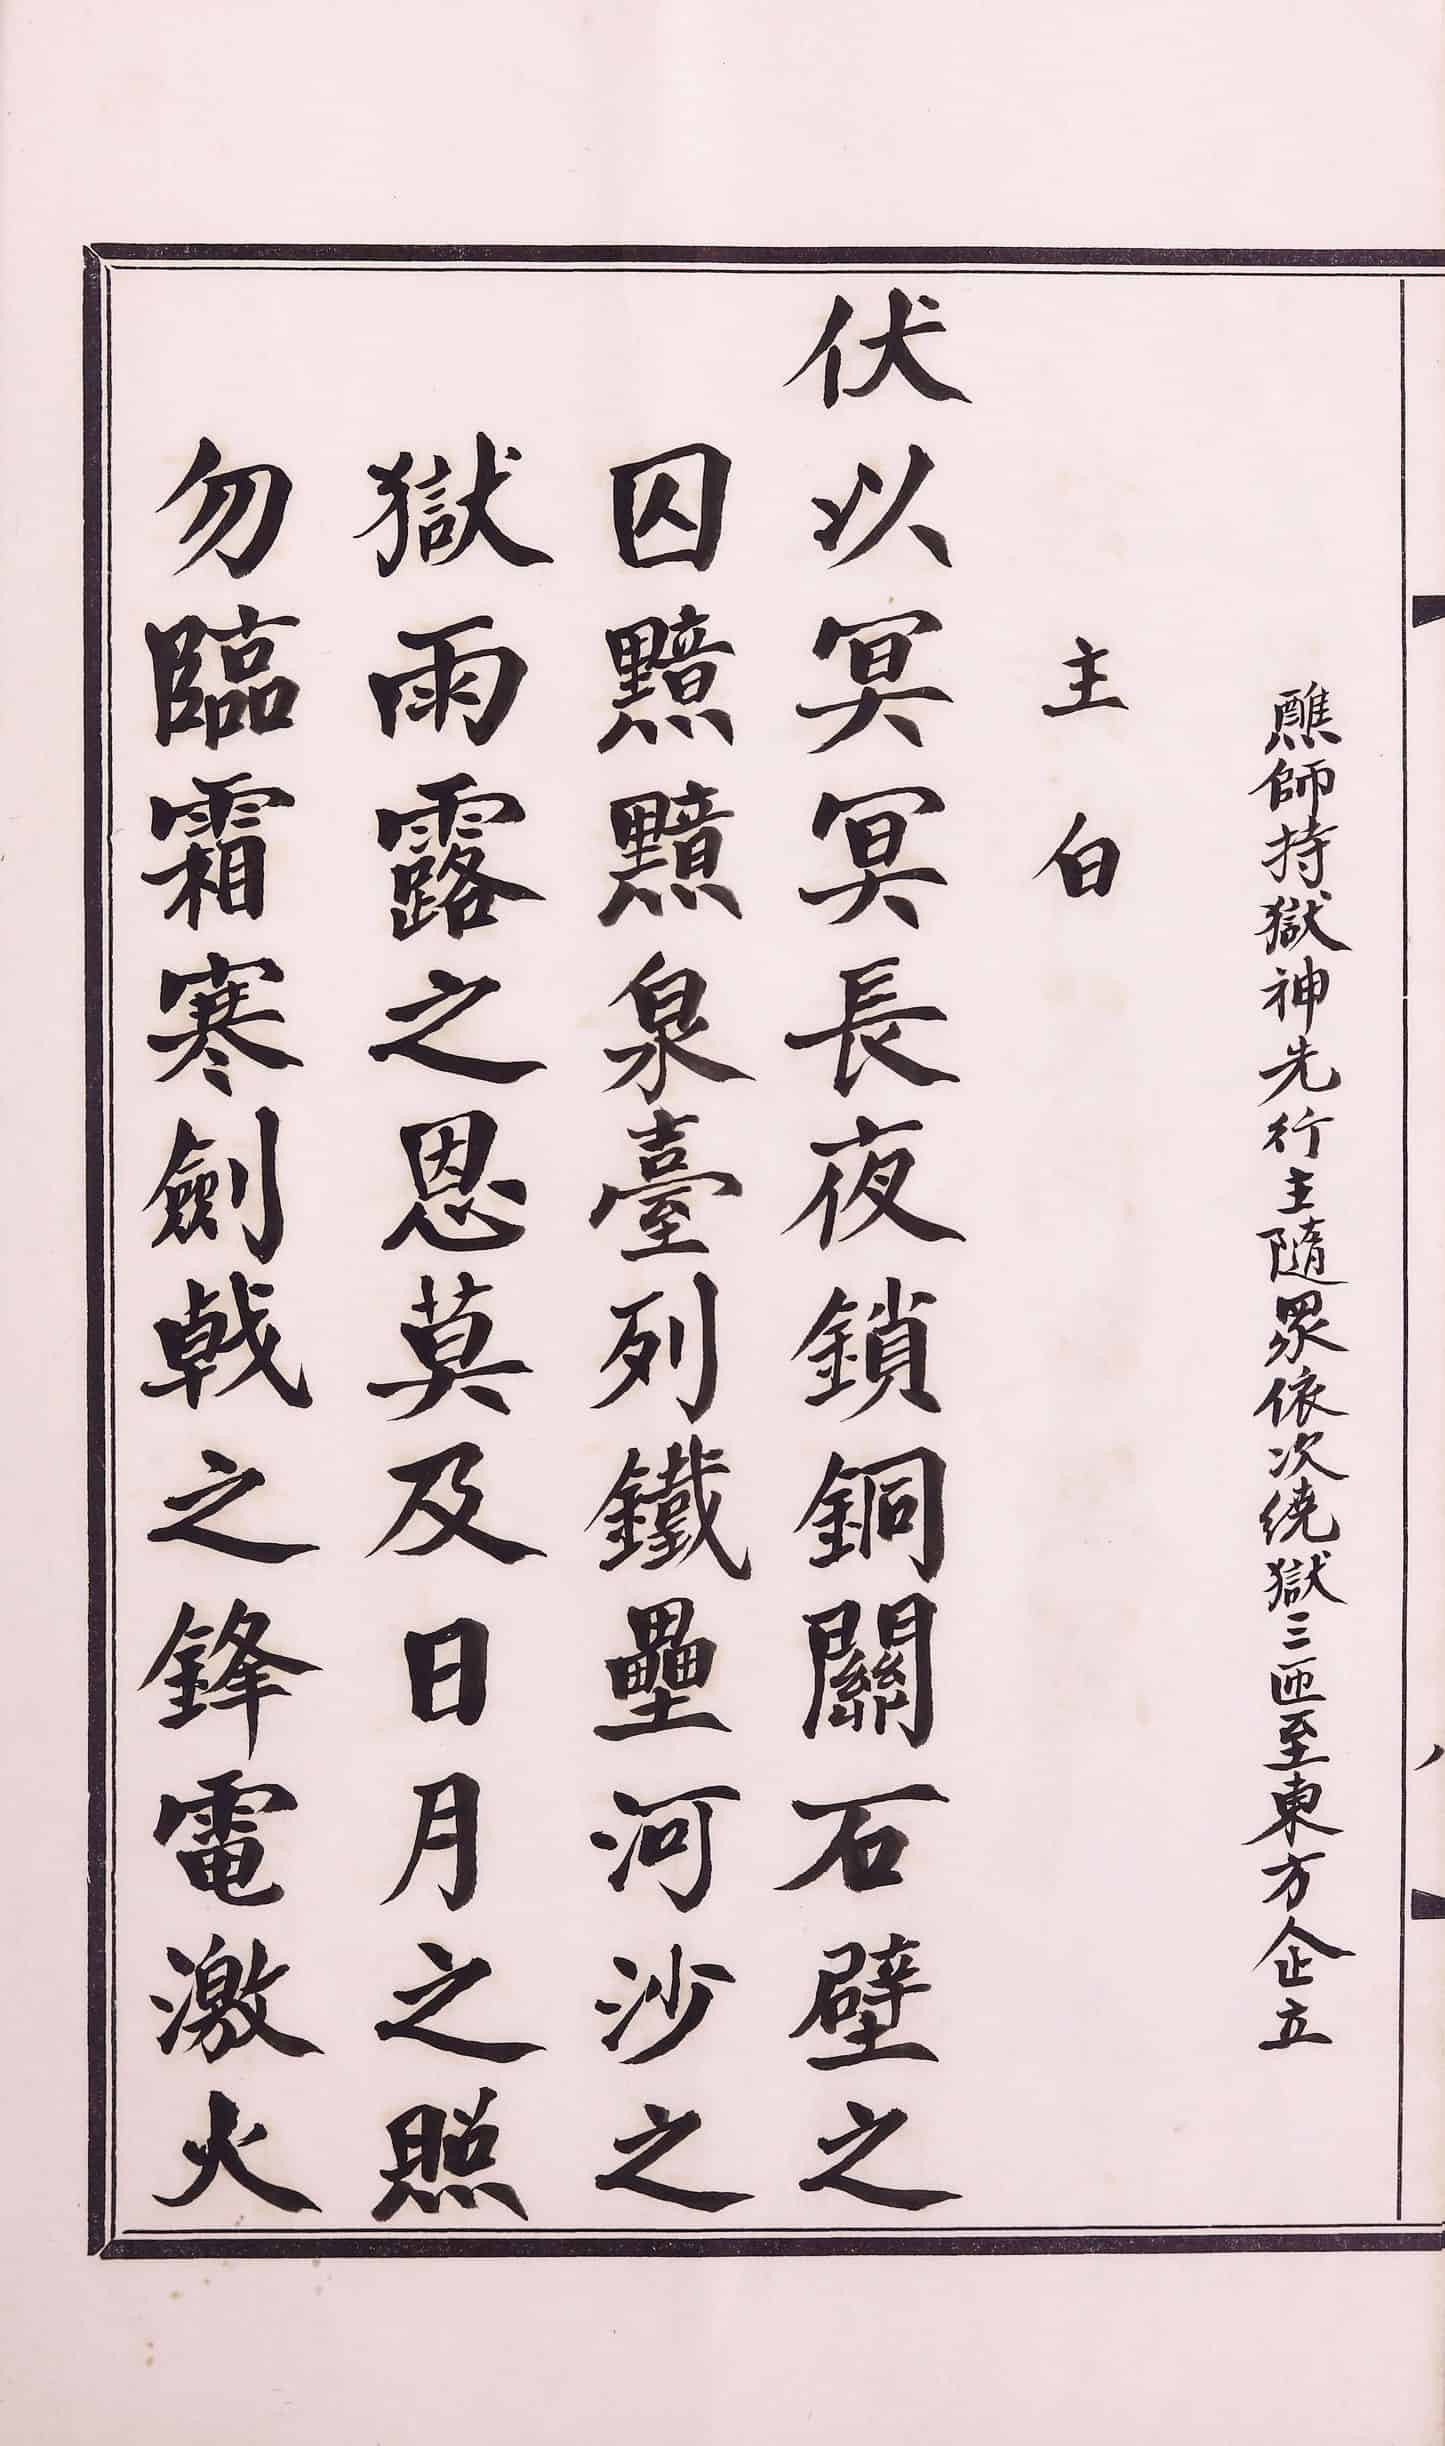 醮師持獄神先行主隨眾依次繞獄三匝至東方企立
主白
伏以冥冥長夜鎖銅關石壁之
囚黯黯泉臺列鐵壘河沙之
獄雨露之恩莫及日月之照
勿臨霜寒劍戟之鋒電激火